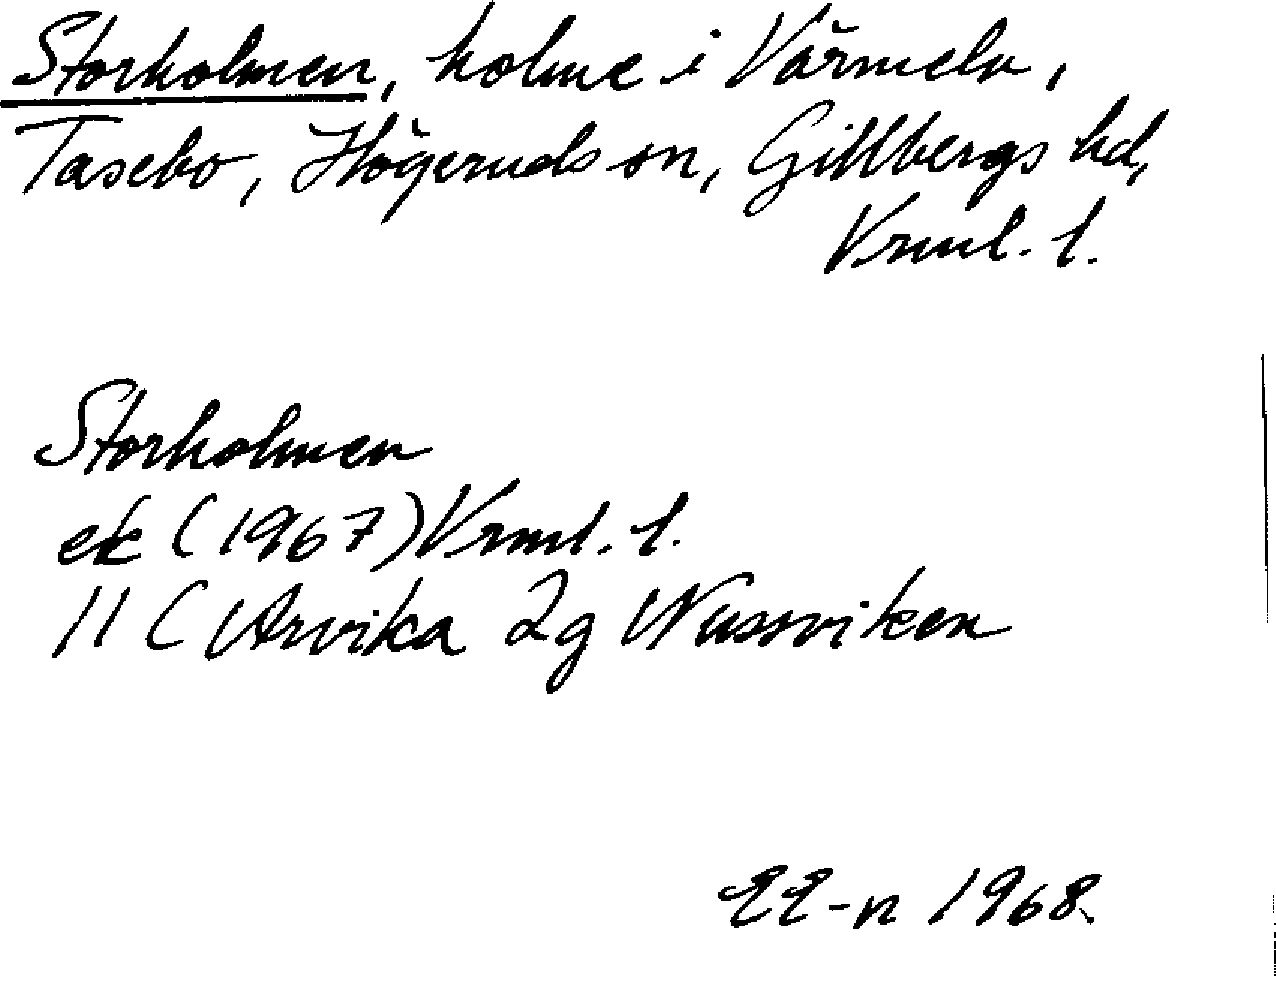 Storholmen, holme i Värmeln,
Tasebo, Högeruds sn, Gillbergs hd,
Vrml. l.
Storholmen
ek (1967) Vrml. l.
11 C Arvika 2g Nussviken
EE-n 1968